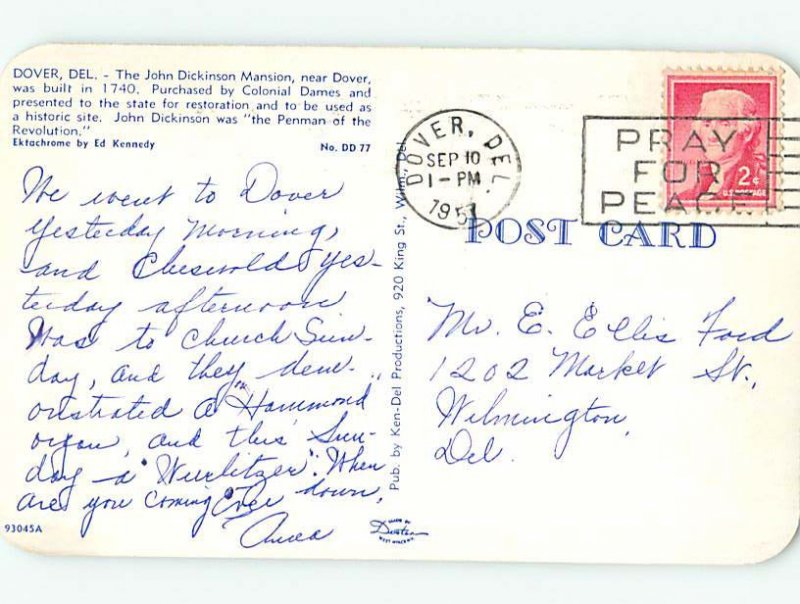 DOVER, DEL. - The John Dickinson Mansion, near Dover,
was built in 1740. Purchased by Colonial Dames and
presented to the state for restoration and to be used as
a historic site. John Dickinson was "the Penman of the
Revolution."
Ektachrome by Ed Kennedy No. DD 77
We went to Dover
yesterday morning,
and Cheswold yes-
terday afternoon
Was to Church Sun-
day, and they dem-
onstrated a "Hammond
organ, and this Sun-
day a "Wurlitzer". When
are you coming down,
93045A
Pub. by Ken-Del Productions, 920 King St., Wilm., Del.
DOVER, DEL.
SEP 10
1-PM
PRAY
FOR
PEACE
2¢
U.S. POSTAGE
POST CARD
Mr. E. Ellis Ford
1202 Market St.,
Wilmington,
Del.
MADE BY
Dexter
WEST NYACK, N.Y.